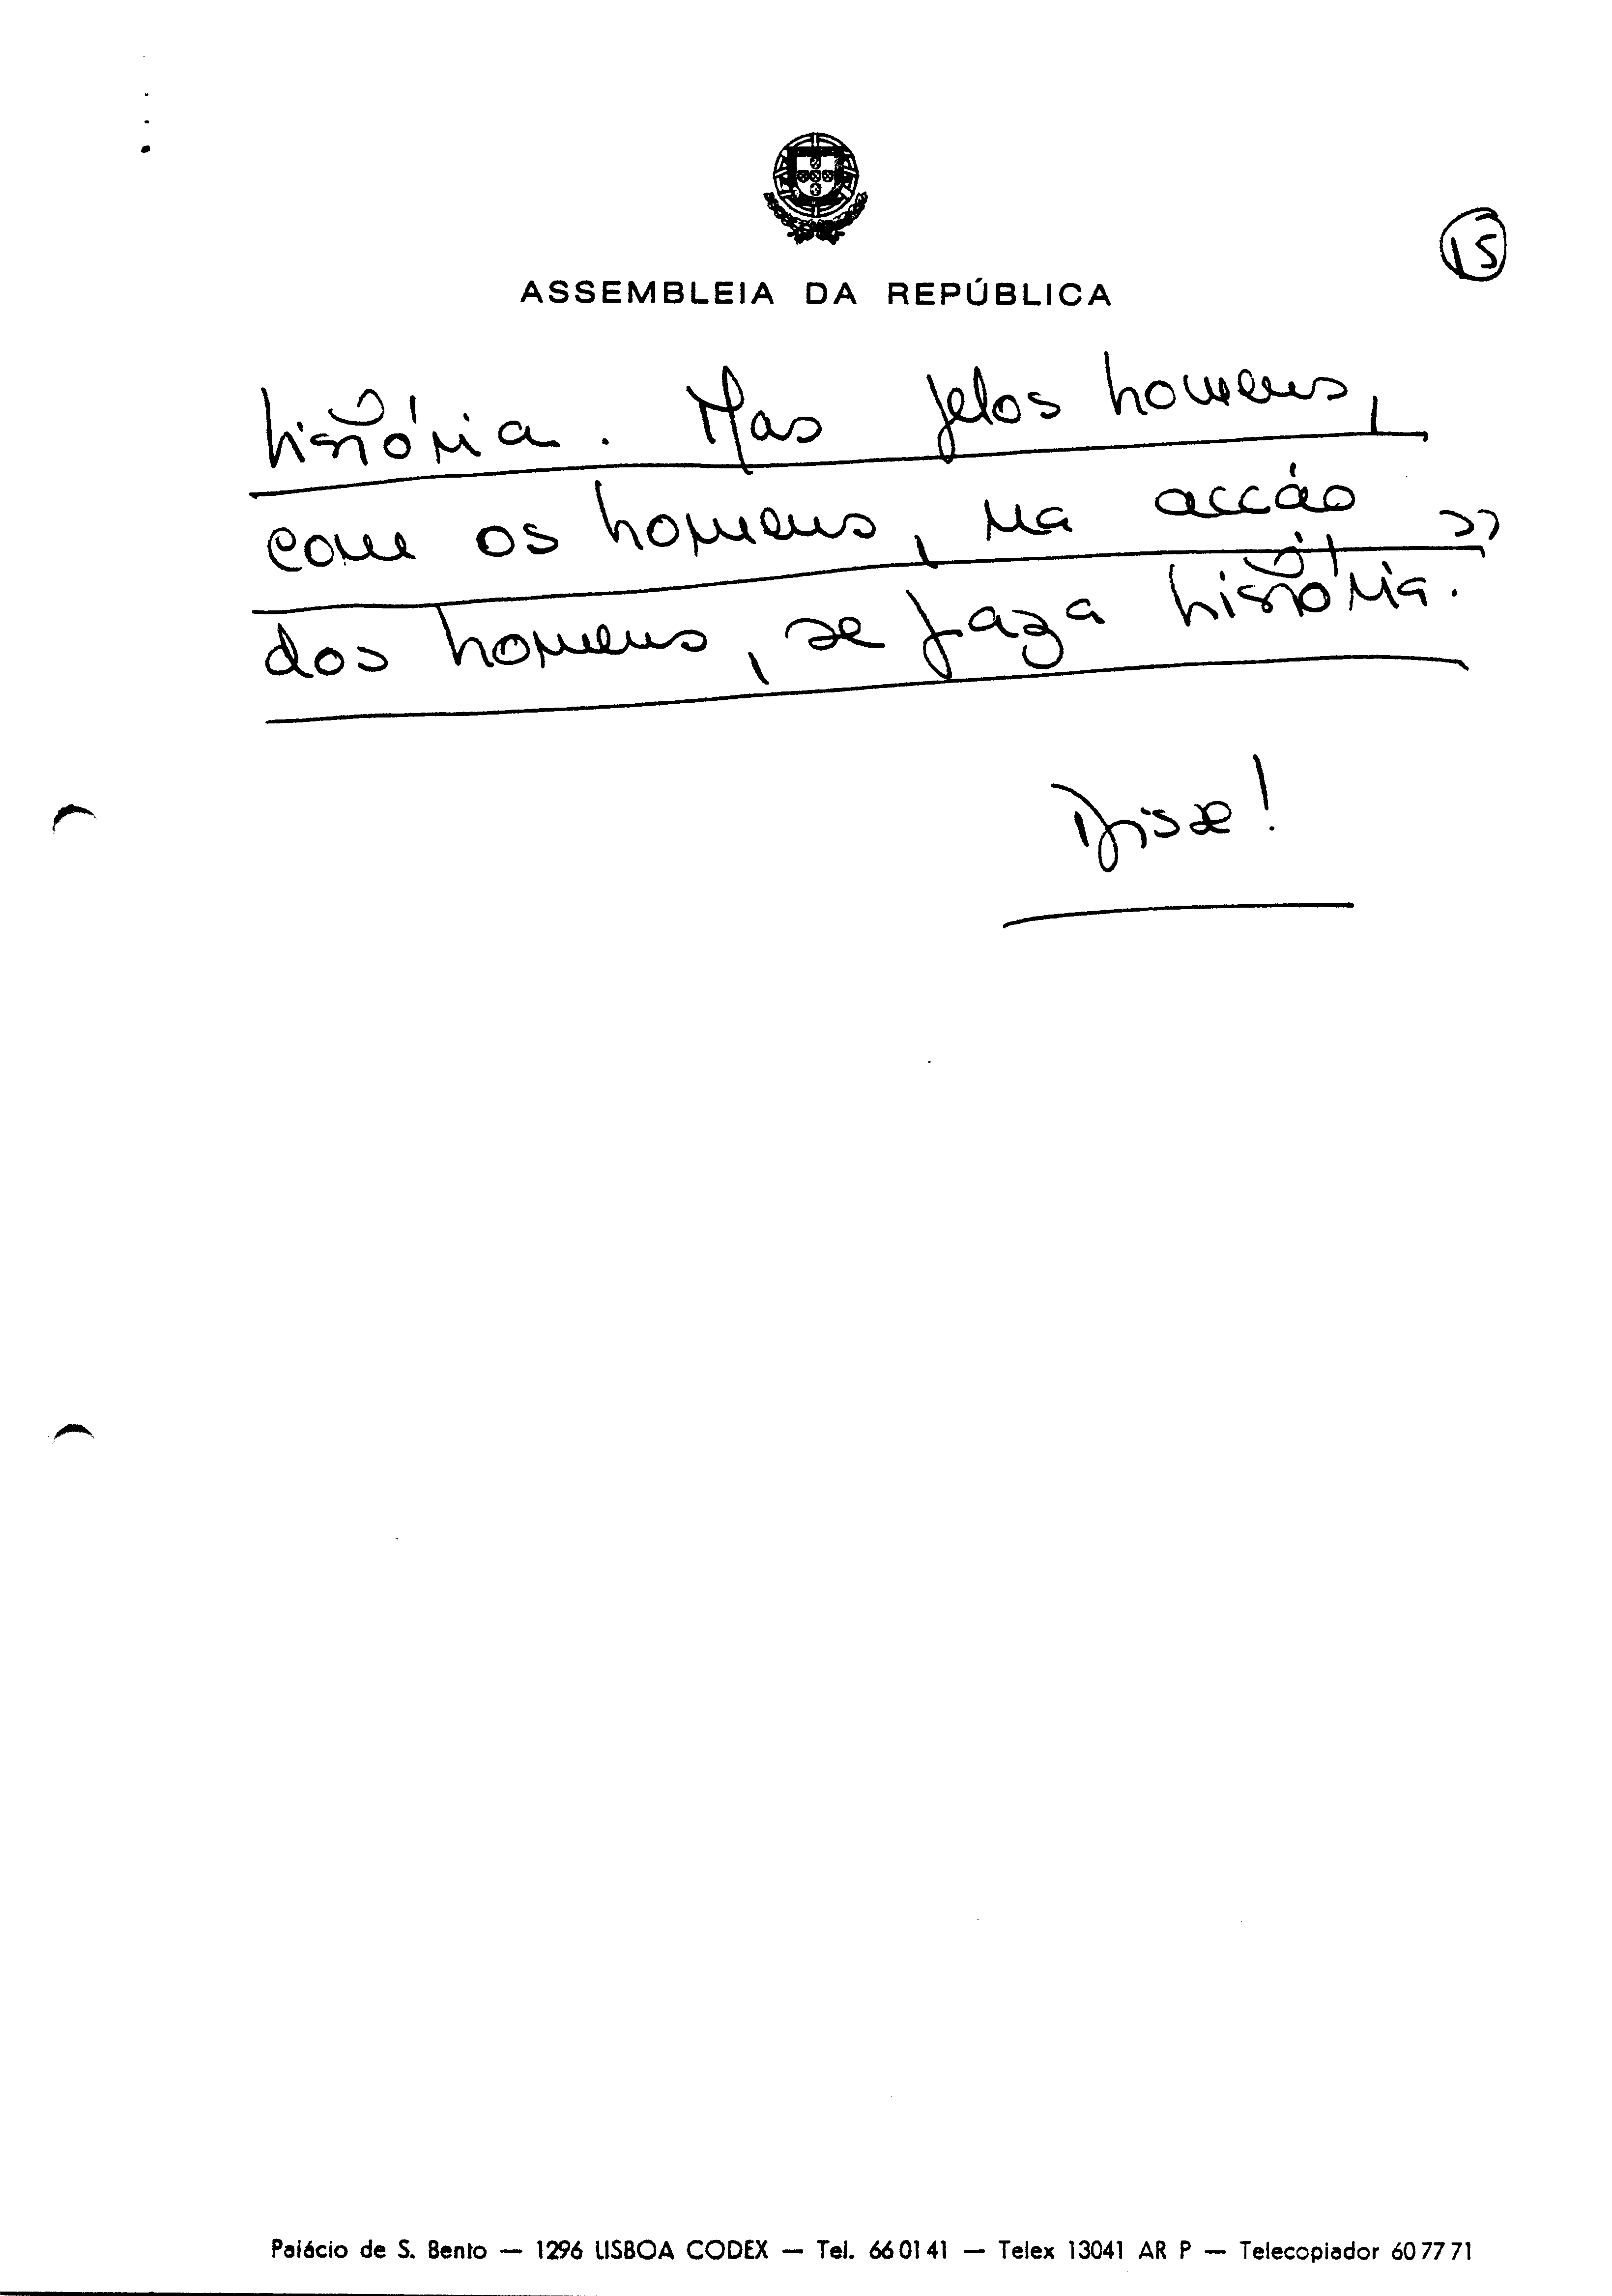 15
ASSEMBLEIA DA REPÚBLICA
história. Mas pelos homens,
com os homens, na acção
dos homens, se faz a história."
Disse!
Palácio de S. Bento — 1296 LISBOA CODEX — Tel. 66 01 41 — Telex 13041 AR P — Telecopiador 60 77 71